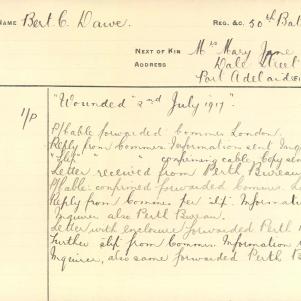 NAME Bert C Dawe. REG. &C. 50th Bat
NEXT OF KIN Mrs Mary Jane
ADDRESS Dale Street
Port Adelaide
I/P "Wounded" 2nd July 1917.
P/Cable forwarded Commrs London.
Reply from Commrs. Information sent Inqu
"Slip" " " confirming cable. Copy sen
Letter received from Perth Bureau
P/Cable: confirmed forwarded Commrs L
Reply from Commrs per slip. Informati
Inquirer also Perth Bureau.
Letter with enclosure forwarded Perth
Further slip from Commrs Information
Inquirer, also same forwarded Perth B